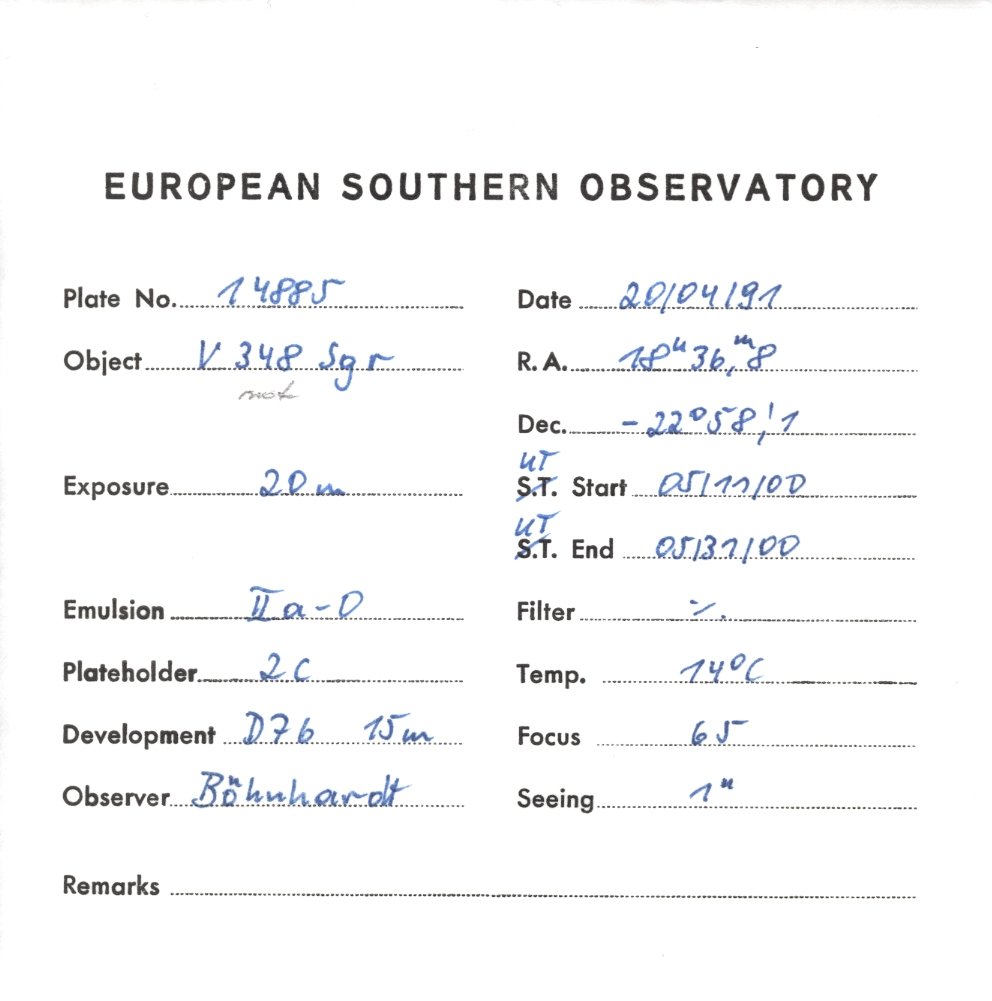 EUROPEAN SOUTHERN OBSERVATORY
Plate No. 14885 Date 20/04/91
Object V 348 Sgr R. A. 18ʰ36,ᵐ8
Dec. -22°58,'1
UT
Exposure 20m S.T. Start 05/11/00
UT
S.T. End 05/31/00
Emulsion IIa-O Filter ·/.
Plateholder 2C Temp. 14°C
Development D76 15m Focus 65
Observer Böhnhardt Seeing 1"
Remarks